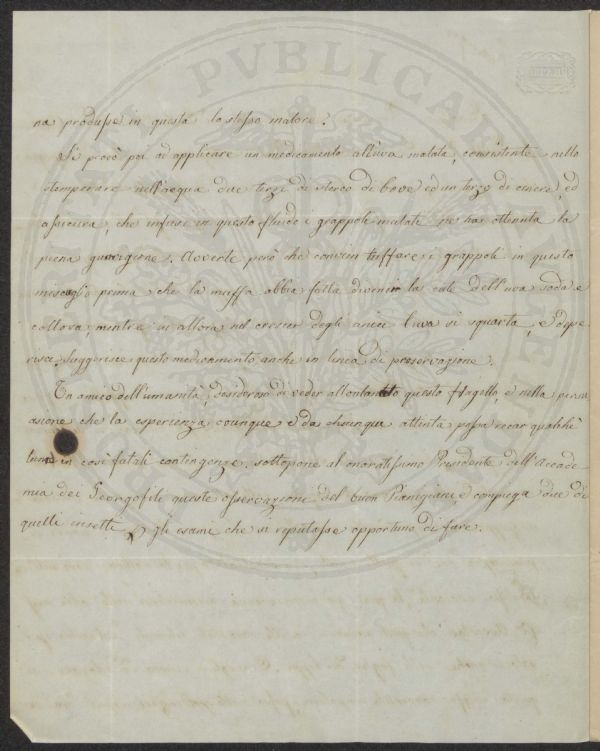 PVBLICAE
na produsse in questa lo stesso malore?
Si provò poi ad applicare un medicamento all'uva malata, consistente nello
stemperare nell'acqua due terzi di sterco di bove ed un terzo di cenere, ed
assicura, che infusi in questo fluido i grappoli malati ne hai ottenuta la
piena guarigione. Averte però che convien tuffare i grappoli in questo
mescuglio prima che la muffa abbia fatta divenir la cute dell'uva soda e
mentre in allora nel crescer degli acini l'uva si squarta, e depe
risce. Suggerisce questo medicamento anche in linea di preservazione.
Un amico dell'umanità, desideroso di veder allontanato questo flagello, e nella persu
asione che la esperienza ovunque e da chiunque attinta possa recar qualche
lume in così fatali contingenze, sottopone al onoratissimo Presidente dell'Accade
mia dei Georgofili queste osservazione del buon Pianigiani, e compiega due di
quelli insetti gli esami che si reputasse opportuno di fare.